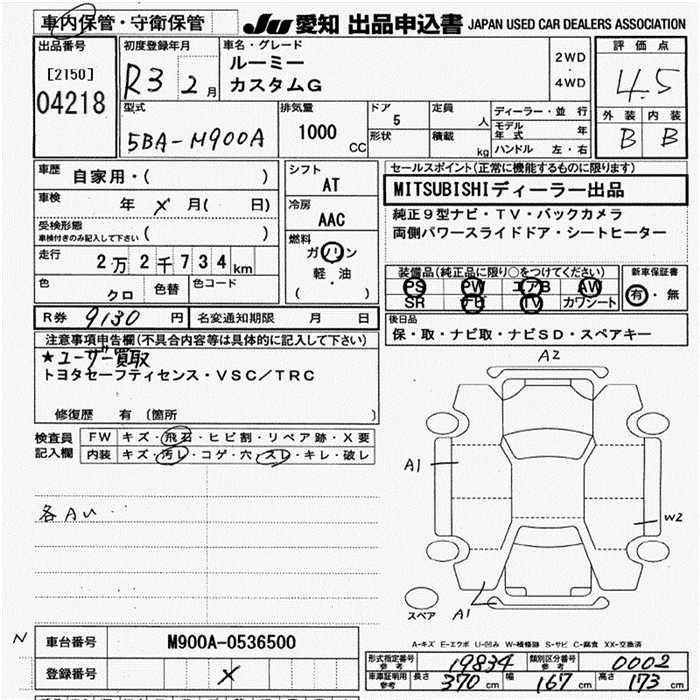 車内保管・守衛保管
JU 愛知 出品申込書 JAPAN USED CAR DEALERS ASSOCIATION
出品番号
[2150]
04218
初度登録年月
R3 2月
車名・グレード
ルーミー
カスタムG
2WD
・
4WD
評価点
4.5
外装 内装
B B
型式
5BA-M900A
排気量
1000 CC
ドア
5
形状
定員
人
積載
kg
ディーラー・並行
モデル年式 年
ハンドル 左・右
車歴
自家用・( )
車検
年 メ 月( 日)
受検形態
車検付きのみ記入して下さい ( )
走行
2万2千734km
色
クロ
色替
色コード
シフト
AT
冷房
AAC
燃料
ガソリン
軽・油
( )
セールスポイント(正常に機能するものに限ります)
MITSUBISHIディーラー出品
純正9型ナビ・TV・バックカメラ
両側パワースライドドア・シートヒーター
装備品(純正品に限り○をつけてください)
PS PW エアB AW
SR FB TV カワシート
新車保証書
有・無
R券 9130 円
名変通知期限 月 日
後日品
保・取・ナビ取・ナビSD・スペアキー
注意事項申告欄(不具合内容等は具体的に記入して下さい)
★ユーザー買取
トヨタセーフティセンス・VSC/TRC
修復歴 有 (箇所 )
検査員
記入欄
FW キズ・飛石・ヒビ割・リペア跡・X要
内装 キズ・汚レ・コゲ・穴・スレ・キレ・破レ
各AU
A2
A1
W2
A1
スペア
A-キズ E-エクボ U-凹み W-補修跡 S-サビ C-腐食 XX-交換済
N
車台番号 M900A-0536500
登録番号 メ
形式指定番号
参考
19834
類別区分番号
参考
0002
車庫証明用
参考
長さ 370 cm 幅 167 cm 高さ 173 cm